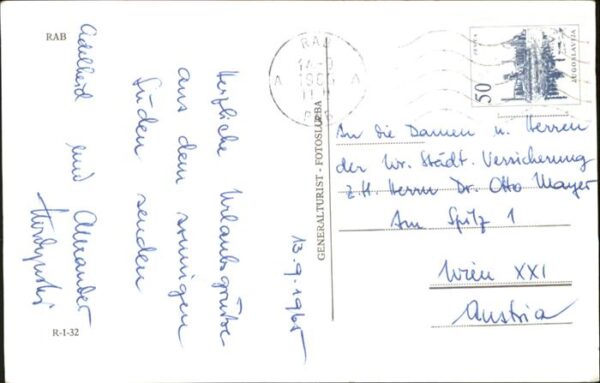 RAB
Herzliche Urlaubsgrüsse
aus dem sonnigen
Süden senden
Adelheid und Alexander
13.9.1965
R-1-32
GENERALTURIST - FOTOSLUŽBA
RAB
1965
A A
RAB
50
JUGOSLAVIJA
An die Damen u. Herren
der Wr. Städt. Versicherung
z.H. Herrn Dr. Otto Mayer
Am Spitz 1
Wien XXI
Austria